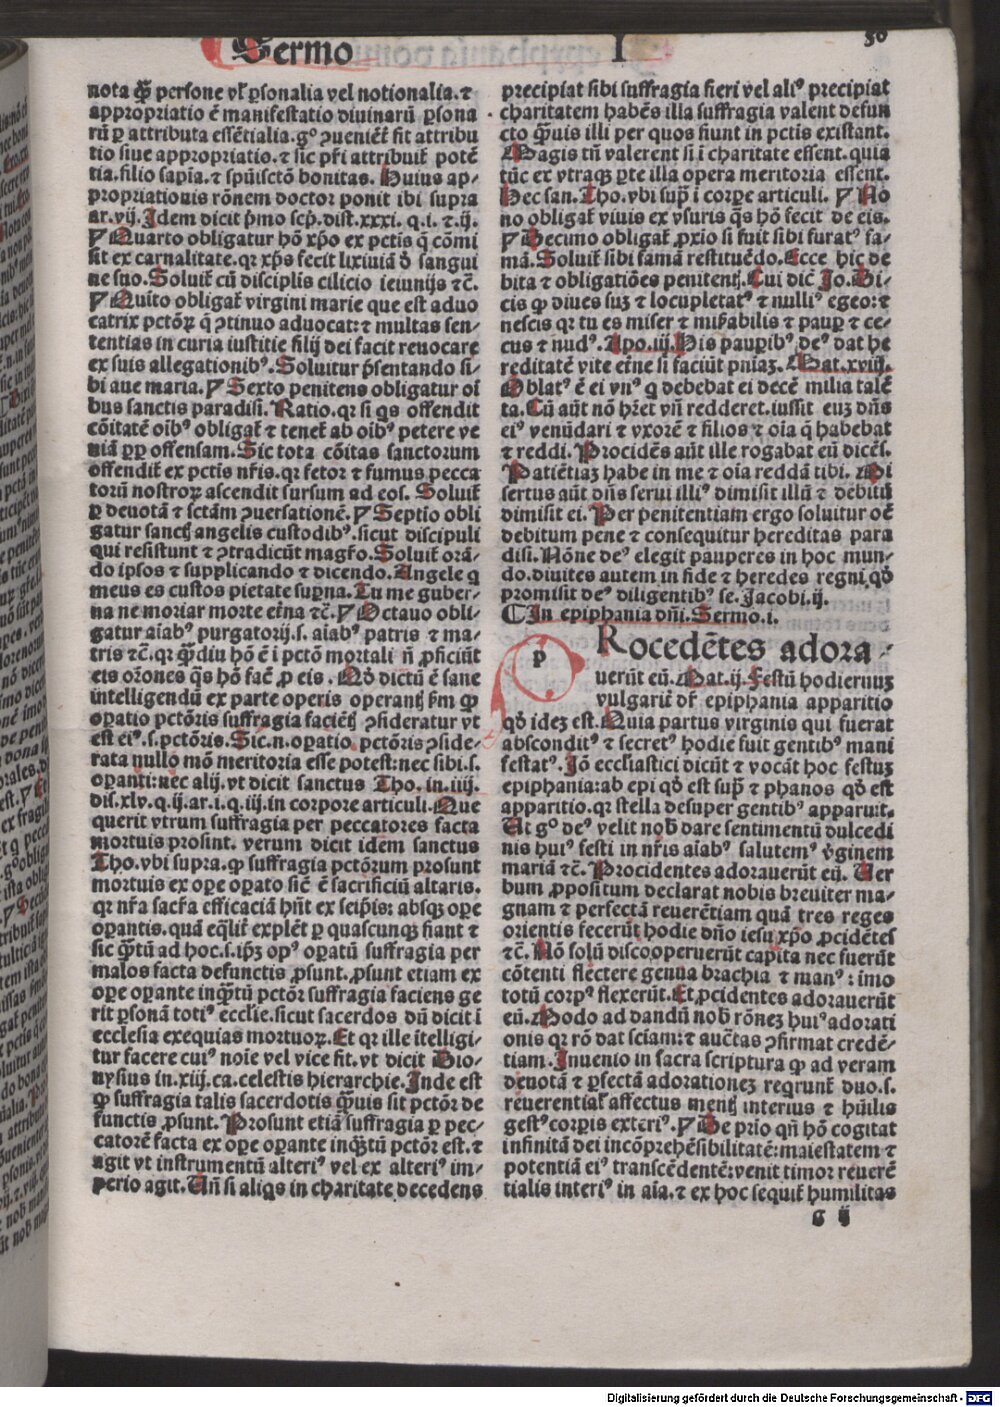 Sermo I 50
nota qͣꝫ persone vl' ꝑsonalia vel notionalia. ⁊
appropriatio ē manifestatio diuinaꝝ ꝑsona
rū ꝑ attributa essētialia. g° ꝯueniēt̃ fit attribu
tio siue appropriatio. ⁊ sic pr̃i attribuit̃ potē
tia. filio sapīa. ⁊ spūisctō bonitas. Huius ap-
propriationis rōnem doctor ponit ibi supra
ar. vij. Idem dicit pͥmo scp̄. dist. xxxi. q. i. ⁊. ij.
¶ Quarto obligatur hō xp̄o ex pctis q̄ cōmi
sit ex carnalitate. qꝛ xp̄s fecit lixiuiā ꝺ̄ sangui
ne suo. Soluit̃ cū disciplīs cilicio ieiunijs ⁊c̄.
¶ Quito obligat̃ virgini marie que est aduo
catrix pctōꝝ q̄ ꝯtinuo aduocat: ⁊ multas sen-
tentias in curia iustitie filij dei facit reuocare
ex suis allegationibꝰ. Soluitur p̄sentando si-
bi aue maria. ¶ Sexto penitens obligatur oī
bus sanctis paradisi. Ratio. qꝛ si qͥs offendit
cōitatē oībꝰ obligat̃ ⁊ tenet̃ ab oībꝰ petere ve
niā ꝓp̄ offensam. Sic tota cōitas sanctorum
offendit̃ ex pctis nr̃is. qꝛ fetor ⁊ fumus pecca
torū nostroꝝ ascendit sursum ad eos. Soluit̃
ꝑ deuotā ⁊ sctām ꝯuersationē. ¶ Septio obli
gatur sanctꝭ angelis custodibꝰ. sicut discipuli
qui resistunt ⁊ ꝯtradicūt magr̃o. Soluit̃ orā-
do ipsos ⁊ supplicando ⁊ dicendo. Angele q
meus es custos pietate suꝑna. Tu me guber-
na ne moriar morte etr̃na ⁊c̄. ¶ Octauo obli-
gatur aīabꝰ purgatorij. s. aīabꝰ patris ⁊ ma-
tris ⁊c̄. qꝛ qͣꝫdiu hō ē i pctō mortali ñ ꝓficiūt
eis orōnes qͣs hō fac̄ ꝓ eis. Qď dictū ē sane
intelligendū ex parte operis operantꝭ ẜm ꝙ
oꝑatio pctōris suffragia faciētꝭ ꝯsideratur vt
est eiꝰ. s. pctōris. Sic. n. oꝑatio pctōris ꝯside-
rata nullo mō meritoria esse potest: nec sibi. s.
oꝑanti: nec alij. vt dicit sanctus Tho. in. iiij.
dis. xlv. q. ij. ar. i. q. iij. in corpore articuli. Que
querit vtrum suffragia per peccatores facta
mortuis prosint. verum dicit idem sanctus
Tho. vbi supra. ꝙ suffragia pctōrum prosunt
mortuis ex oꝑe oꝑato sic̄ ē sacrificiū altaris.
qꝛ nr̃a sacr̃a efficaciā hn̄t ex seip̄is: absqꝫ oꝑe
oꝑantis. quā eq̄lit̃ explēt ꝑ quascunqꝫ fiant ⁊
sic qͣꝫtū ad hoc. s. ip̄ꝫ opꝰ oꝑatū suffragia per
malos facta defunctis ꝓsunt. ꝓsunt etiam ex
oꝑe oꝑante inqͣꝫtū pctōr suffragia faciens ge
rit ꝑsonā totiꝰ ecclīe. sicut sacerdos dū dicit i
ecclesia exequias mortuoꝝ. Et qꝛ ille ītelligi-
tur facere cuiꝰ noīe vel vice fit. vt dicit Dio-
nysius in. xiij. ca. celestis hierarchie. Inde est
ꝙ suffragia talis sacerdotis qͣꝫuis sit pctōr de
functis ꝓsunt. Prosunt etiā suffragia ꝑ pec-
catorē facta ex oꝑe oꝑante inqͣꝫtū pctōr est. ⁊
agit vt instrumentū alteriꝰ vel ex alteriꝰ im-
perio agit. Uñ si aliqͥs in charitate decedens
precipiat sibi suffragia fieri vel aliꝰ precipiat
charitatem habēs illa suffragia valent defun
cto qͣꝫuis illi per quos fiunt in pctis existant.
Magis tñ valerent si i charitate essent. quia
tūc ex vtraqꝫ ꝑte illa opera meritoria essent.
Hec san. Tho. vbi supͣ i corꝑe articuli. ¶ No
no obligat̃ viuis ex vsuris qͣs hō fecit de eis.
¶ Decimo obligat̃ ꝓxio si fuit sibi furatꝰ fa-
mā. Soluit̃ sibi famā restituēdo. Ecce hic de
bita ⁊ obligatiōes penitentꝭ. Cui dic̄ Jo. Di-
cis ꝙ diues suꝫ ⁊ locupletatꝰ ⁊ nulliꝰ egeo: ⁊
nescis qꝛ tu es miser ⁊ mirabilis ⁊ pauꝑ ⁊ ce-
cus ⁊ nudꝰ. Apo. iij. His pauꝑibꝰ deꝰ dat he
reditatē vite etr̃ne si faciūt pn̄iaꝫ. Mat. xviij.
Oblatꝰ ē ei vnꝰ q debebat ei decē milia talē
ta. Cū aūt nō hr̃et vñ redderet. iussit euꝫ dn̄s
eiꝰ venūdari ⁊ vxorē ⁊ filios ⁊ oīa q̄ habebat
⁊ reddi. Procidēs aūt ille rogabat eū dicēs.
Patiētiaꝫ habe in me ⁊ oīa reddā tibi. Mi
sertus aūt dn̄s serui illiꝰ dimisit illū ⁊ debitū
dimisit ei. Per penitentiam ergo soluitur oē
debitum pene ⁊ consequitur hereditas para
disi. Nōne deꝰ elegit pauperes in hoc mun-
do. diuites autem in fide ⁊ heredes regni qď
promisit deꝰ diligentibꝰ se. Jacobi. ij.
¶ In epiphania dn̄i. Sermo. i.
p Rocedētes adora-
uerūt eū. Mat. ij. Festū hodiernuꝫ
vulgarit̃ dr̃ epiphania apparitio
qď ideꝫ est. Quia partus virginis qui fuerat
absconditꝰ ⁊ secretꝰ hodie fuit gentibꝰ mani
festatꝰ. Jō ecclīastici dicūt ⁊ vocāt hoc festuꝫ
epiphania: ab epi qď est supͣ ⁊ phanos qď est
apparitio. qꝛ stella desuper gentibꝰ apparuit.
Ut g° deꝰ velit nob̄ dare sentimentū dulcedi
nis huiꝰ festi in nr̃is aīabꝰ salutemꝰ v̓ginem
mariā ⁊c̄. Procidentes adorauerūt eū. Uer
bum ꝓpositum declarat nobis breuiter ma-
gnam ⁊ perfectā reuerētiam quā tres reges
orientis fecerūt hodie dn̄o iesu xp̄o ꝓcidētes
⁊c̄. Nō solū discooperuerūt capita nec fuerūt
cōtenti flectere genua brachia ⁊ manꝰ: imo
totū corpꝰ flexerūt. Et ꝓcidentes adorauerūt
eū. Modo ad dandū nob̄ rōneꝫ huiꝰ adorati
onis qꝛ rō dat sciam: ⁊ auctas ꝯfirmat credē-
tiam. Inuenio in sacra scriptura ꝙ ad veram
deuotā ⁊ ꝑfectā adorationeꝫ reqͥrunt̃ duo. s.
reuerential' affectus mentꝭ interius ⁊ hūilis
gestꝰ corꝑis exteriꝰ. ¶ De prīo qñ hō cogitat
infinitā dei incōprehēsibilitatē: maiestatem ⁊
potentiā eiꝰ transcēdentē: venit timor reuerē
tialis interiꝰ in aīa. ⁊ ex hoc sequit̃ humilitas
G ij
Digitalisierung gefördert durch die Deutsche Forschungsgemeinschaft - DFG